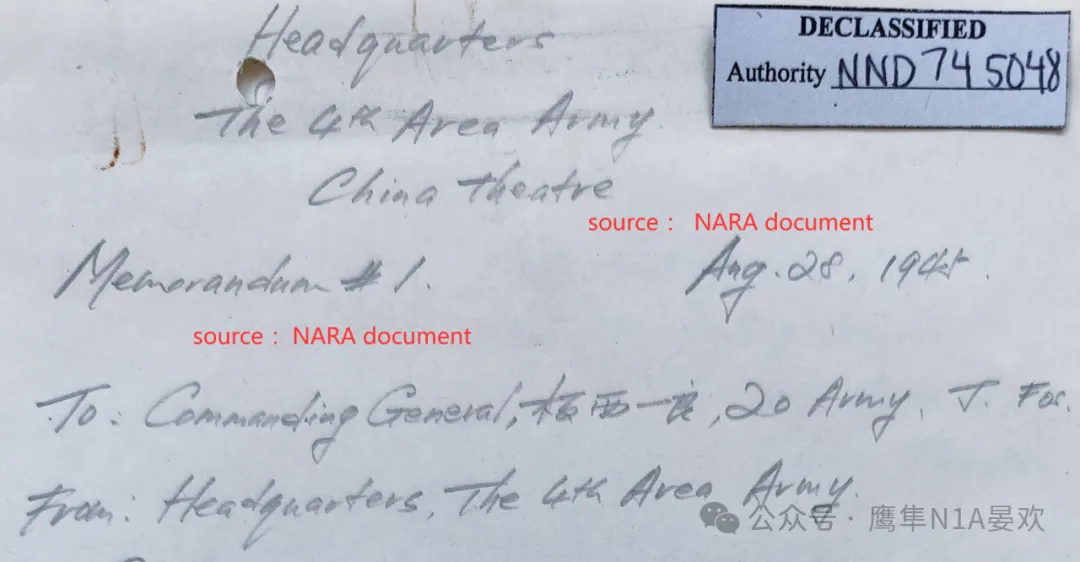 Headquarters
DECLASSIFIED
Authority NND 745048
The 4th Area Army
China Theatre
source： NARA document
Memorandum #1.
Aug. 28, 1945.
source： NARA document
To: Commanding General, 板西一良, 20 Army, J. For.
From: Headquarters, The 4th Area Army.
公众号·鹰隼N1A晏欢